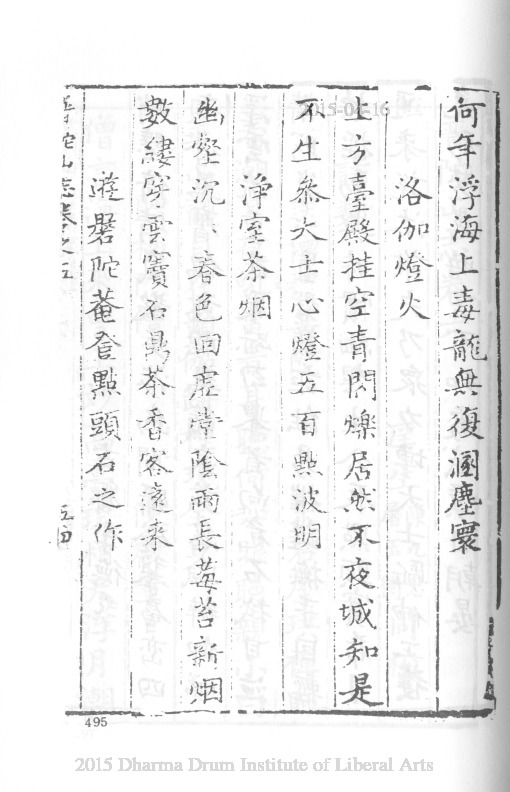 何年浮海上毒龍無復溷塵寰
洛伽燈火
上方臺殿挂空青閃爍居然不夜城知是
不生參大士心燈五百點波明
淨室茶烟
幽壑沉〻春色回虛堂陰雨長莓苔新烟
數縷穿雲竇石鼎茶香客遠来
遊磐陀菴登點頭石之作
普陀山志卷之五
2015-04-16
495
2015 Dharma Drum Institute of Liberal Arts